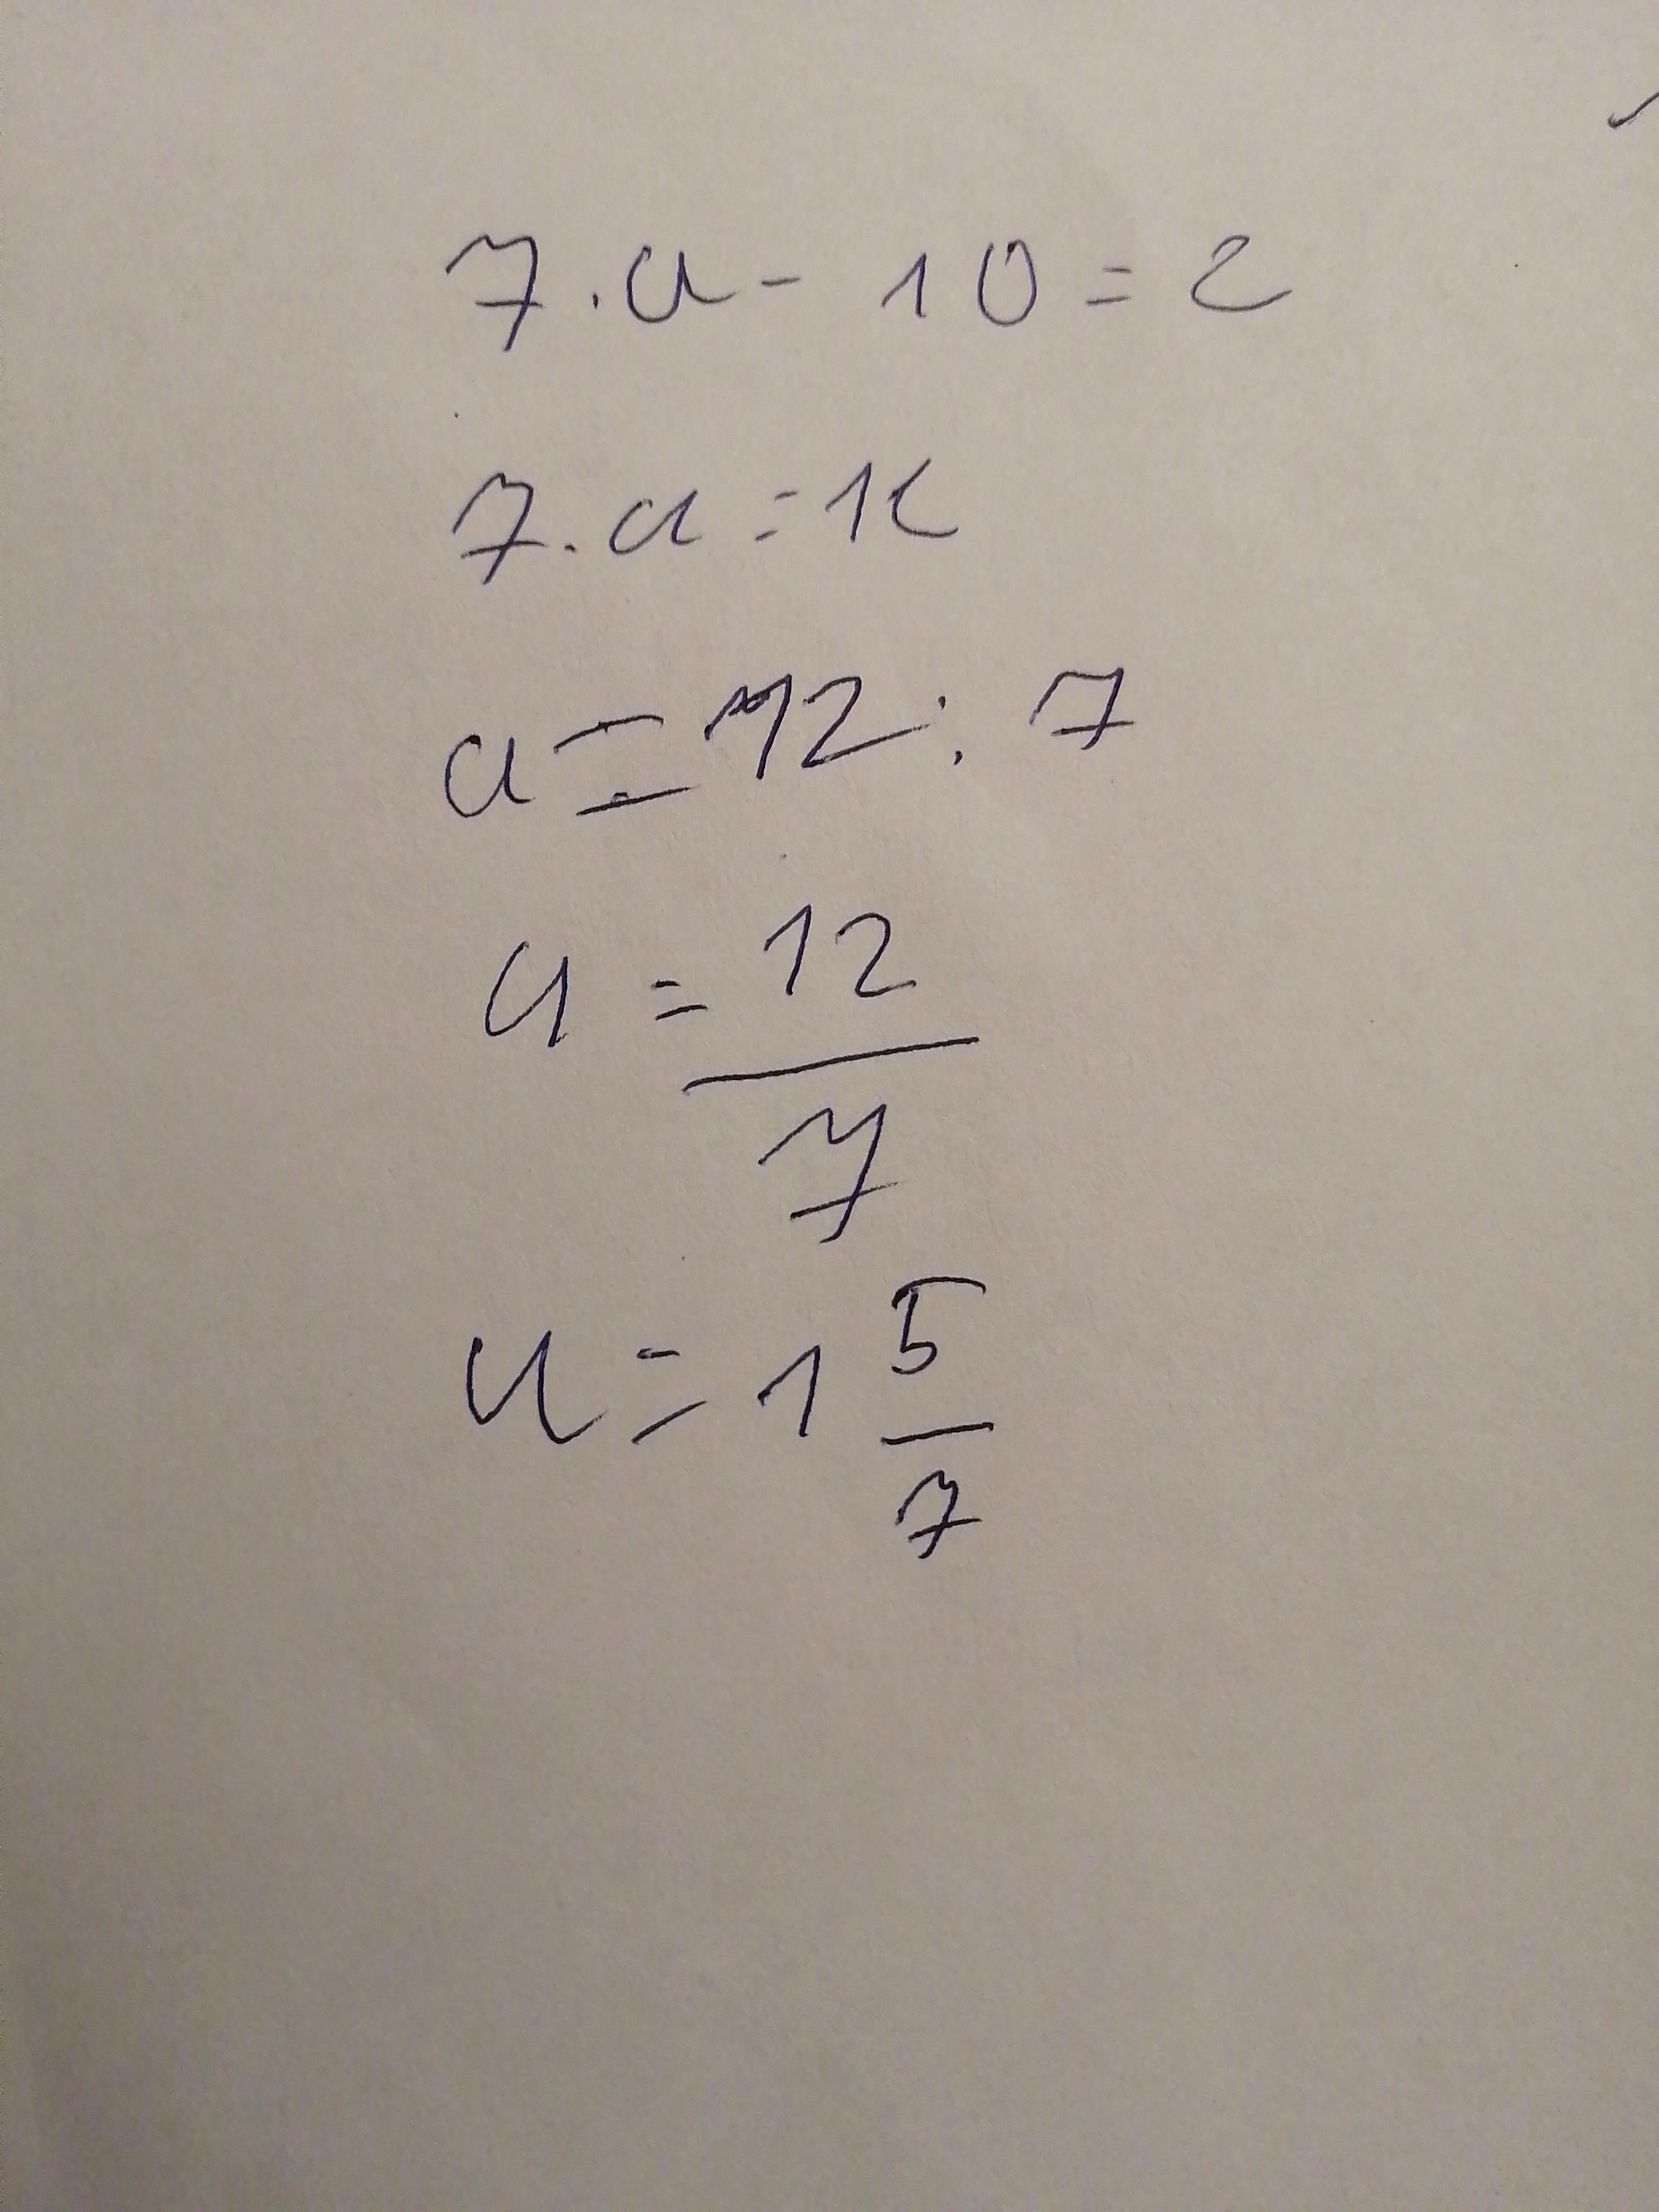 7.a - 10 = 2
7.a = 12
a = 12 : 7
a = 12/7
a = 1 5/7